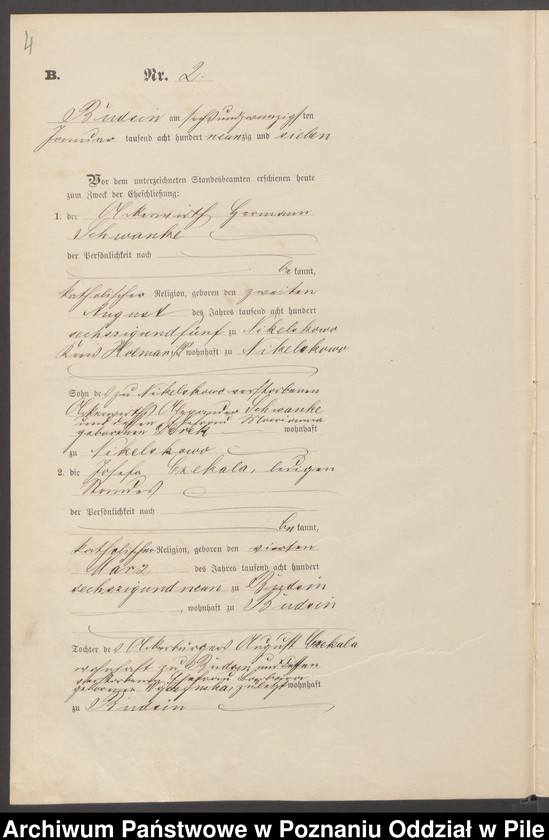 4
B. Nr. 2.
Budsin am sechsundzwanzigsten
Januar tausend acht hundert neunzig und sieben
Vor dem unterzeichneten Standesbeamten erschienen heute
zum Zweck der Eheschließung:
1. der Ackerwirth Hermann
Schwanke
der Persönlichkeit nach
be kannt,
katholischer Religion, geboren den zweiten
August des Jahres tausend acht hundert
sechszigundfünf zu Nikelskowo
Kreis wohnhaft zu Nikelskowo
Sohn des zu Nikelskowo verstorbenen
Ackerwirths Alexander Schwanke
und dessen Ehefrau Marianna
geborenen wohnhaft
zu Nikelskowo
2. die Josefa Czekala, ledigen
Standes
der Persönlichkeit nach
be kannt,
katholischer Religion, geboren den vierten
März des Jahres tausend acht hundert
sechszigundneun zu Budsin
, wohnhaft zu Budsin
Tochter des Ackerbürgers August Czekala
wohnhaft zu Budsin und dessen
verstorbenen Ehefrau Barbara
geborenen zuletzt wohnhaft
zu Budsin
Archiwum Państwowe w Poznaniu Oddział w Pile